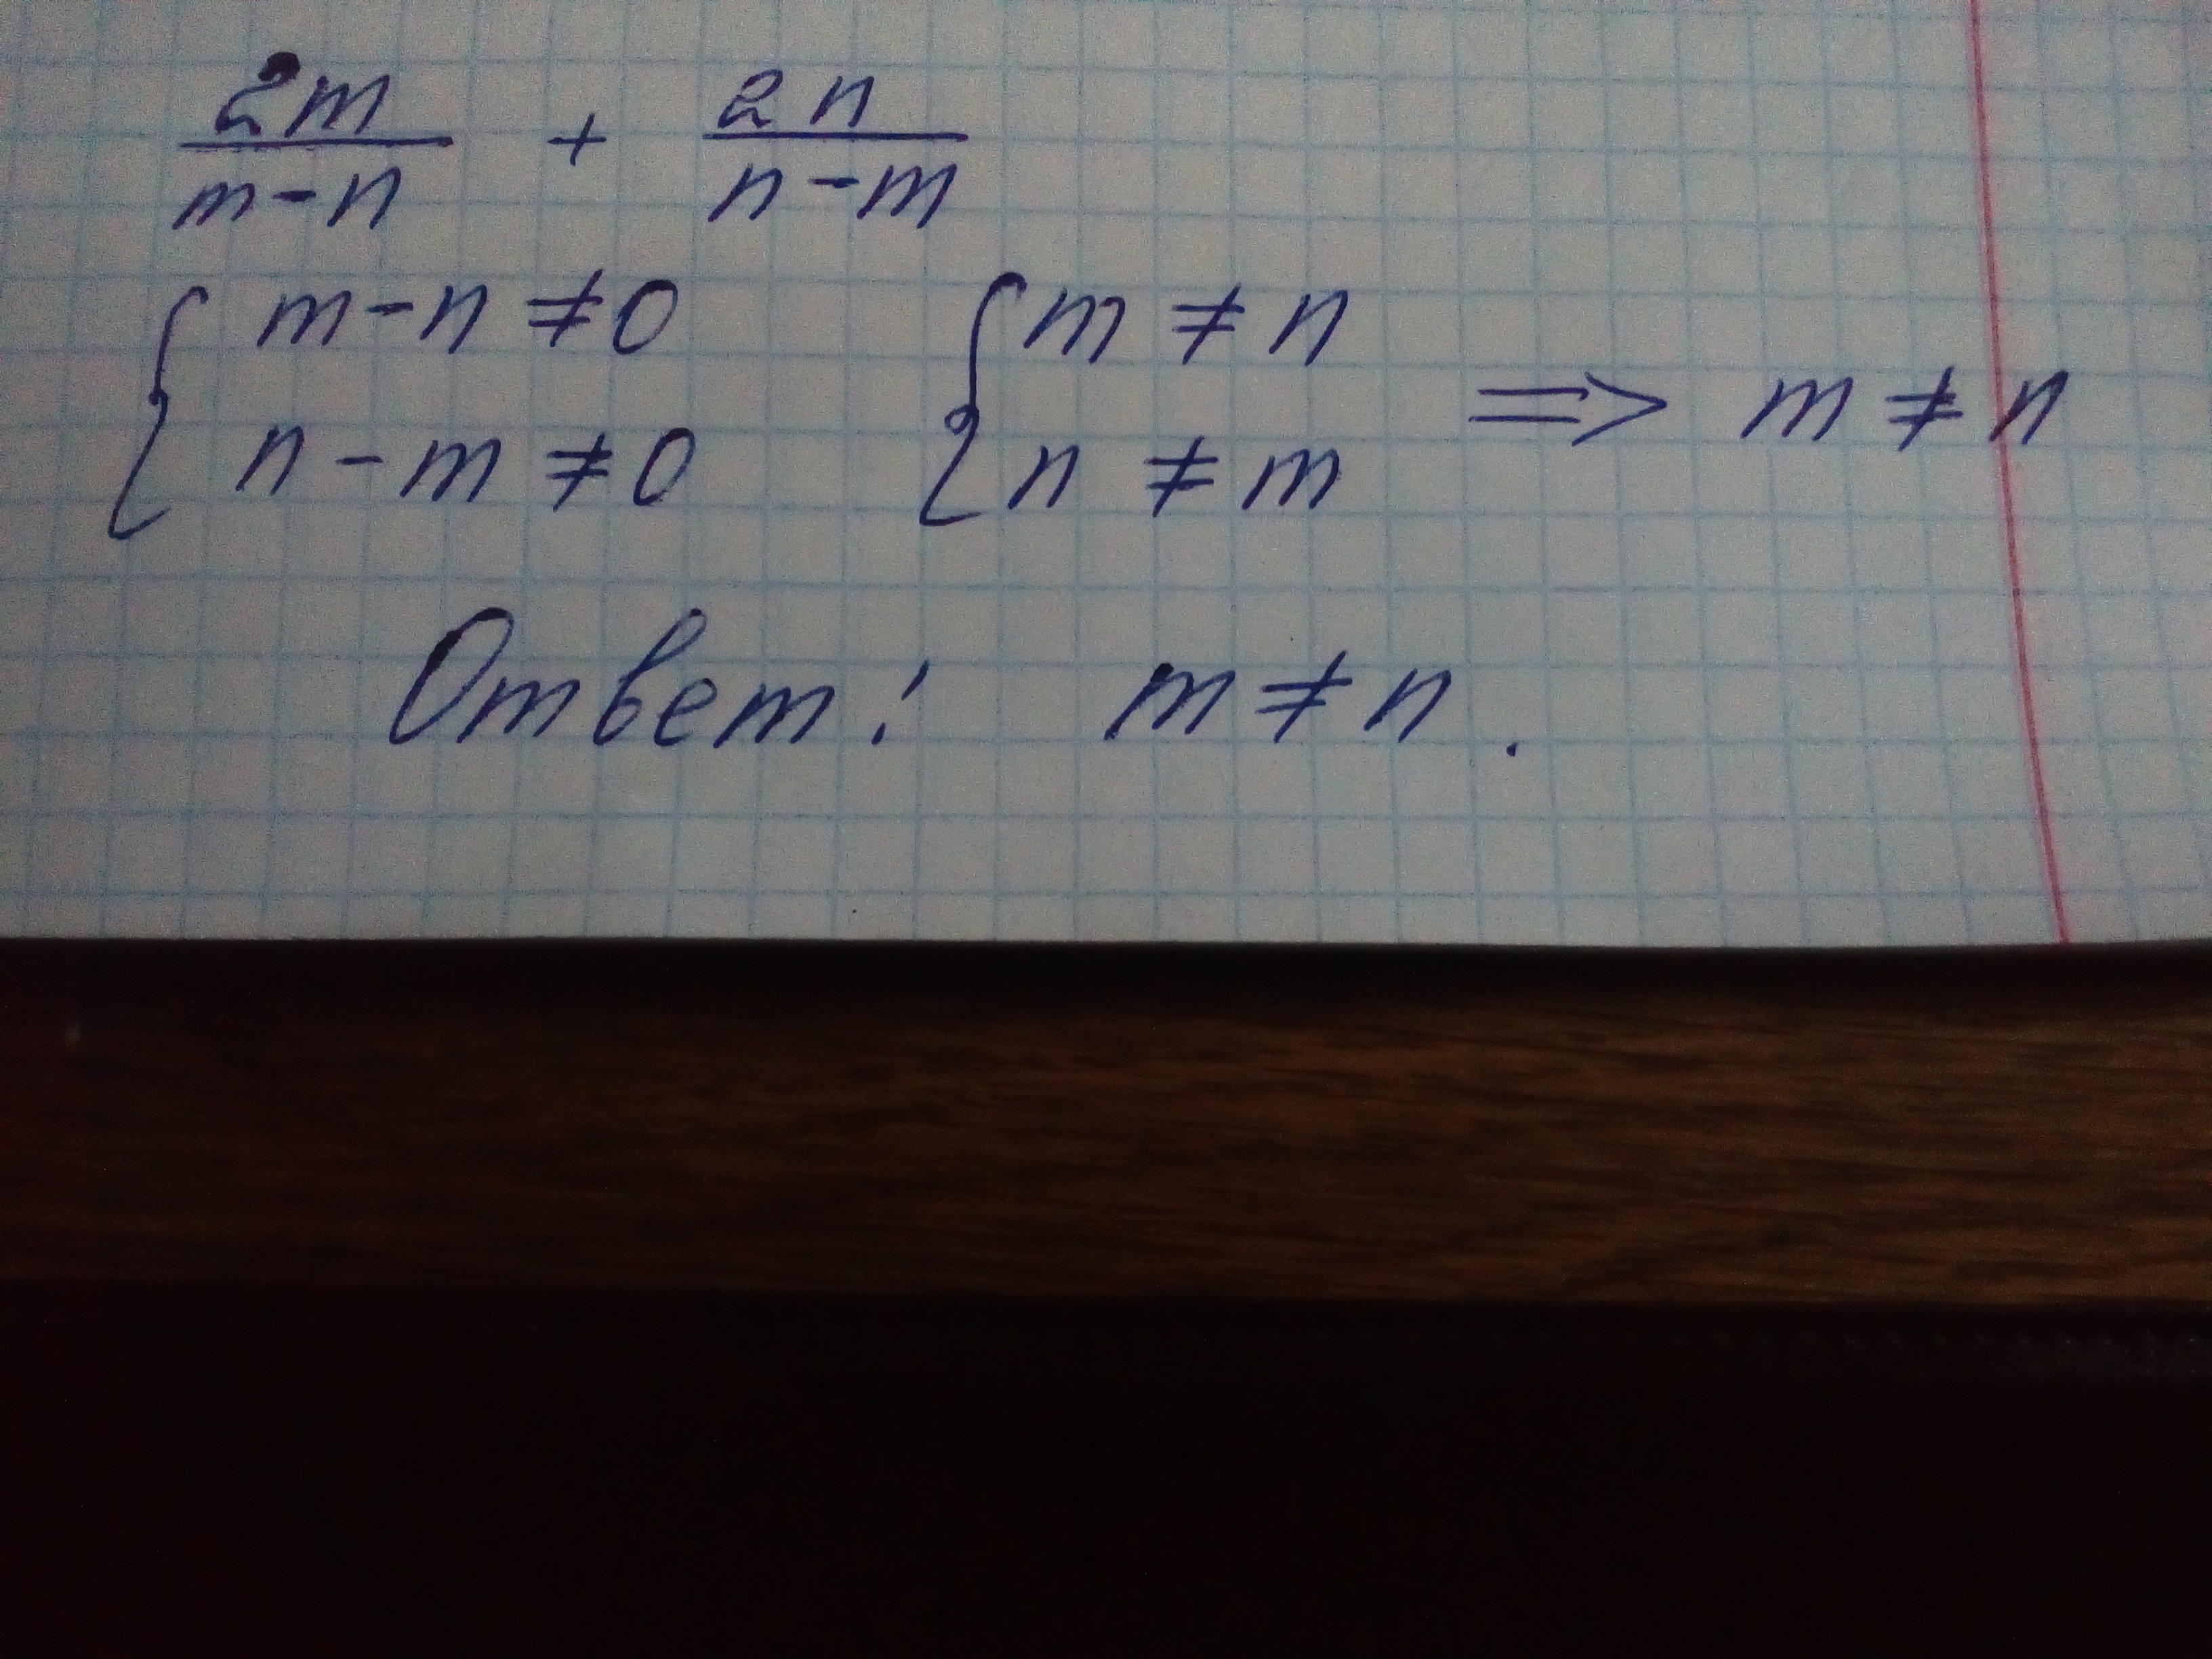 2m/(m-n) + 2n/(n-m)
{ m-n ≠ 0 { m ≠ n
n-m ≠ 0 n ≠ m ⟹ m ≠ n
Ответ: m ≠ n.